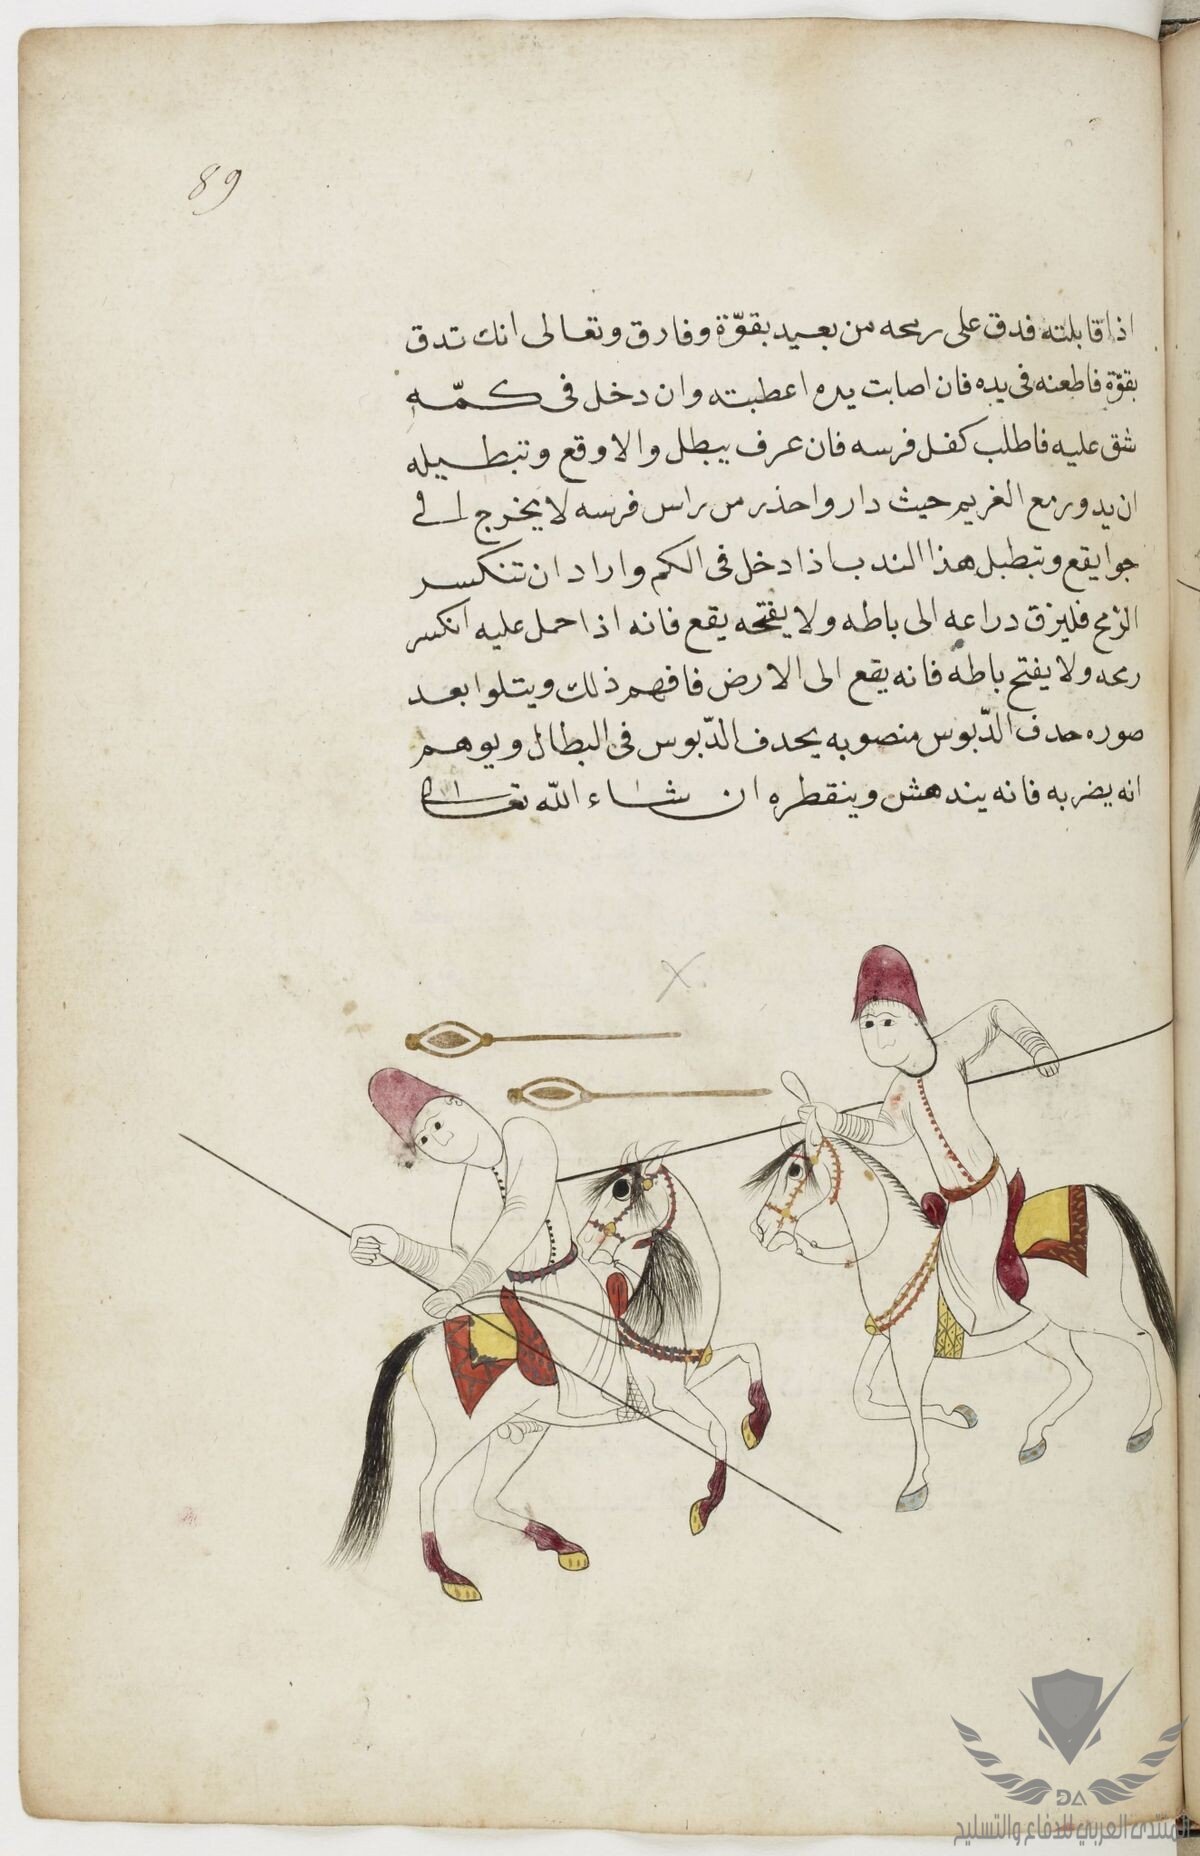 89
اذا قابلته فدق على رمحه من بعيد بقوّة وفارق وتعالى انك تدق
بقوّة فاطعنه فى يده فان اصابت يده اعطبته وان دخل فى كمّه
شق عليه فاطلب كفل فرسه فان عرف يبطل والا وقع وتبطيله
ان يدور مع الغريم حيث دار واحذر من راس فرسه لا يخرج الى
جوا يقع وتبطيل هذا الند ب اذا دخل فى الكم واراد ان تنكسر
الرمح فليزق دراعه الى باطه ولا يفتحه يقع فانه اذا حمل عليه انكسر
رمحه ولا يفتح باطه فانه يقع الى الارض فافهم ذلك ويتلوا بعد
صوره حدف الدّبوس منصوبه يحدف الدّبوس فى البطال ويوهم
انه يضربه فانه يندهش وينقطره ان شاء الله تعالى
DA
المنتدى العربي للدفاع والتسليح